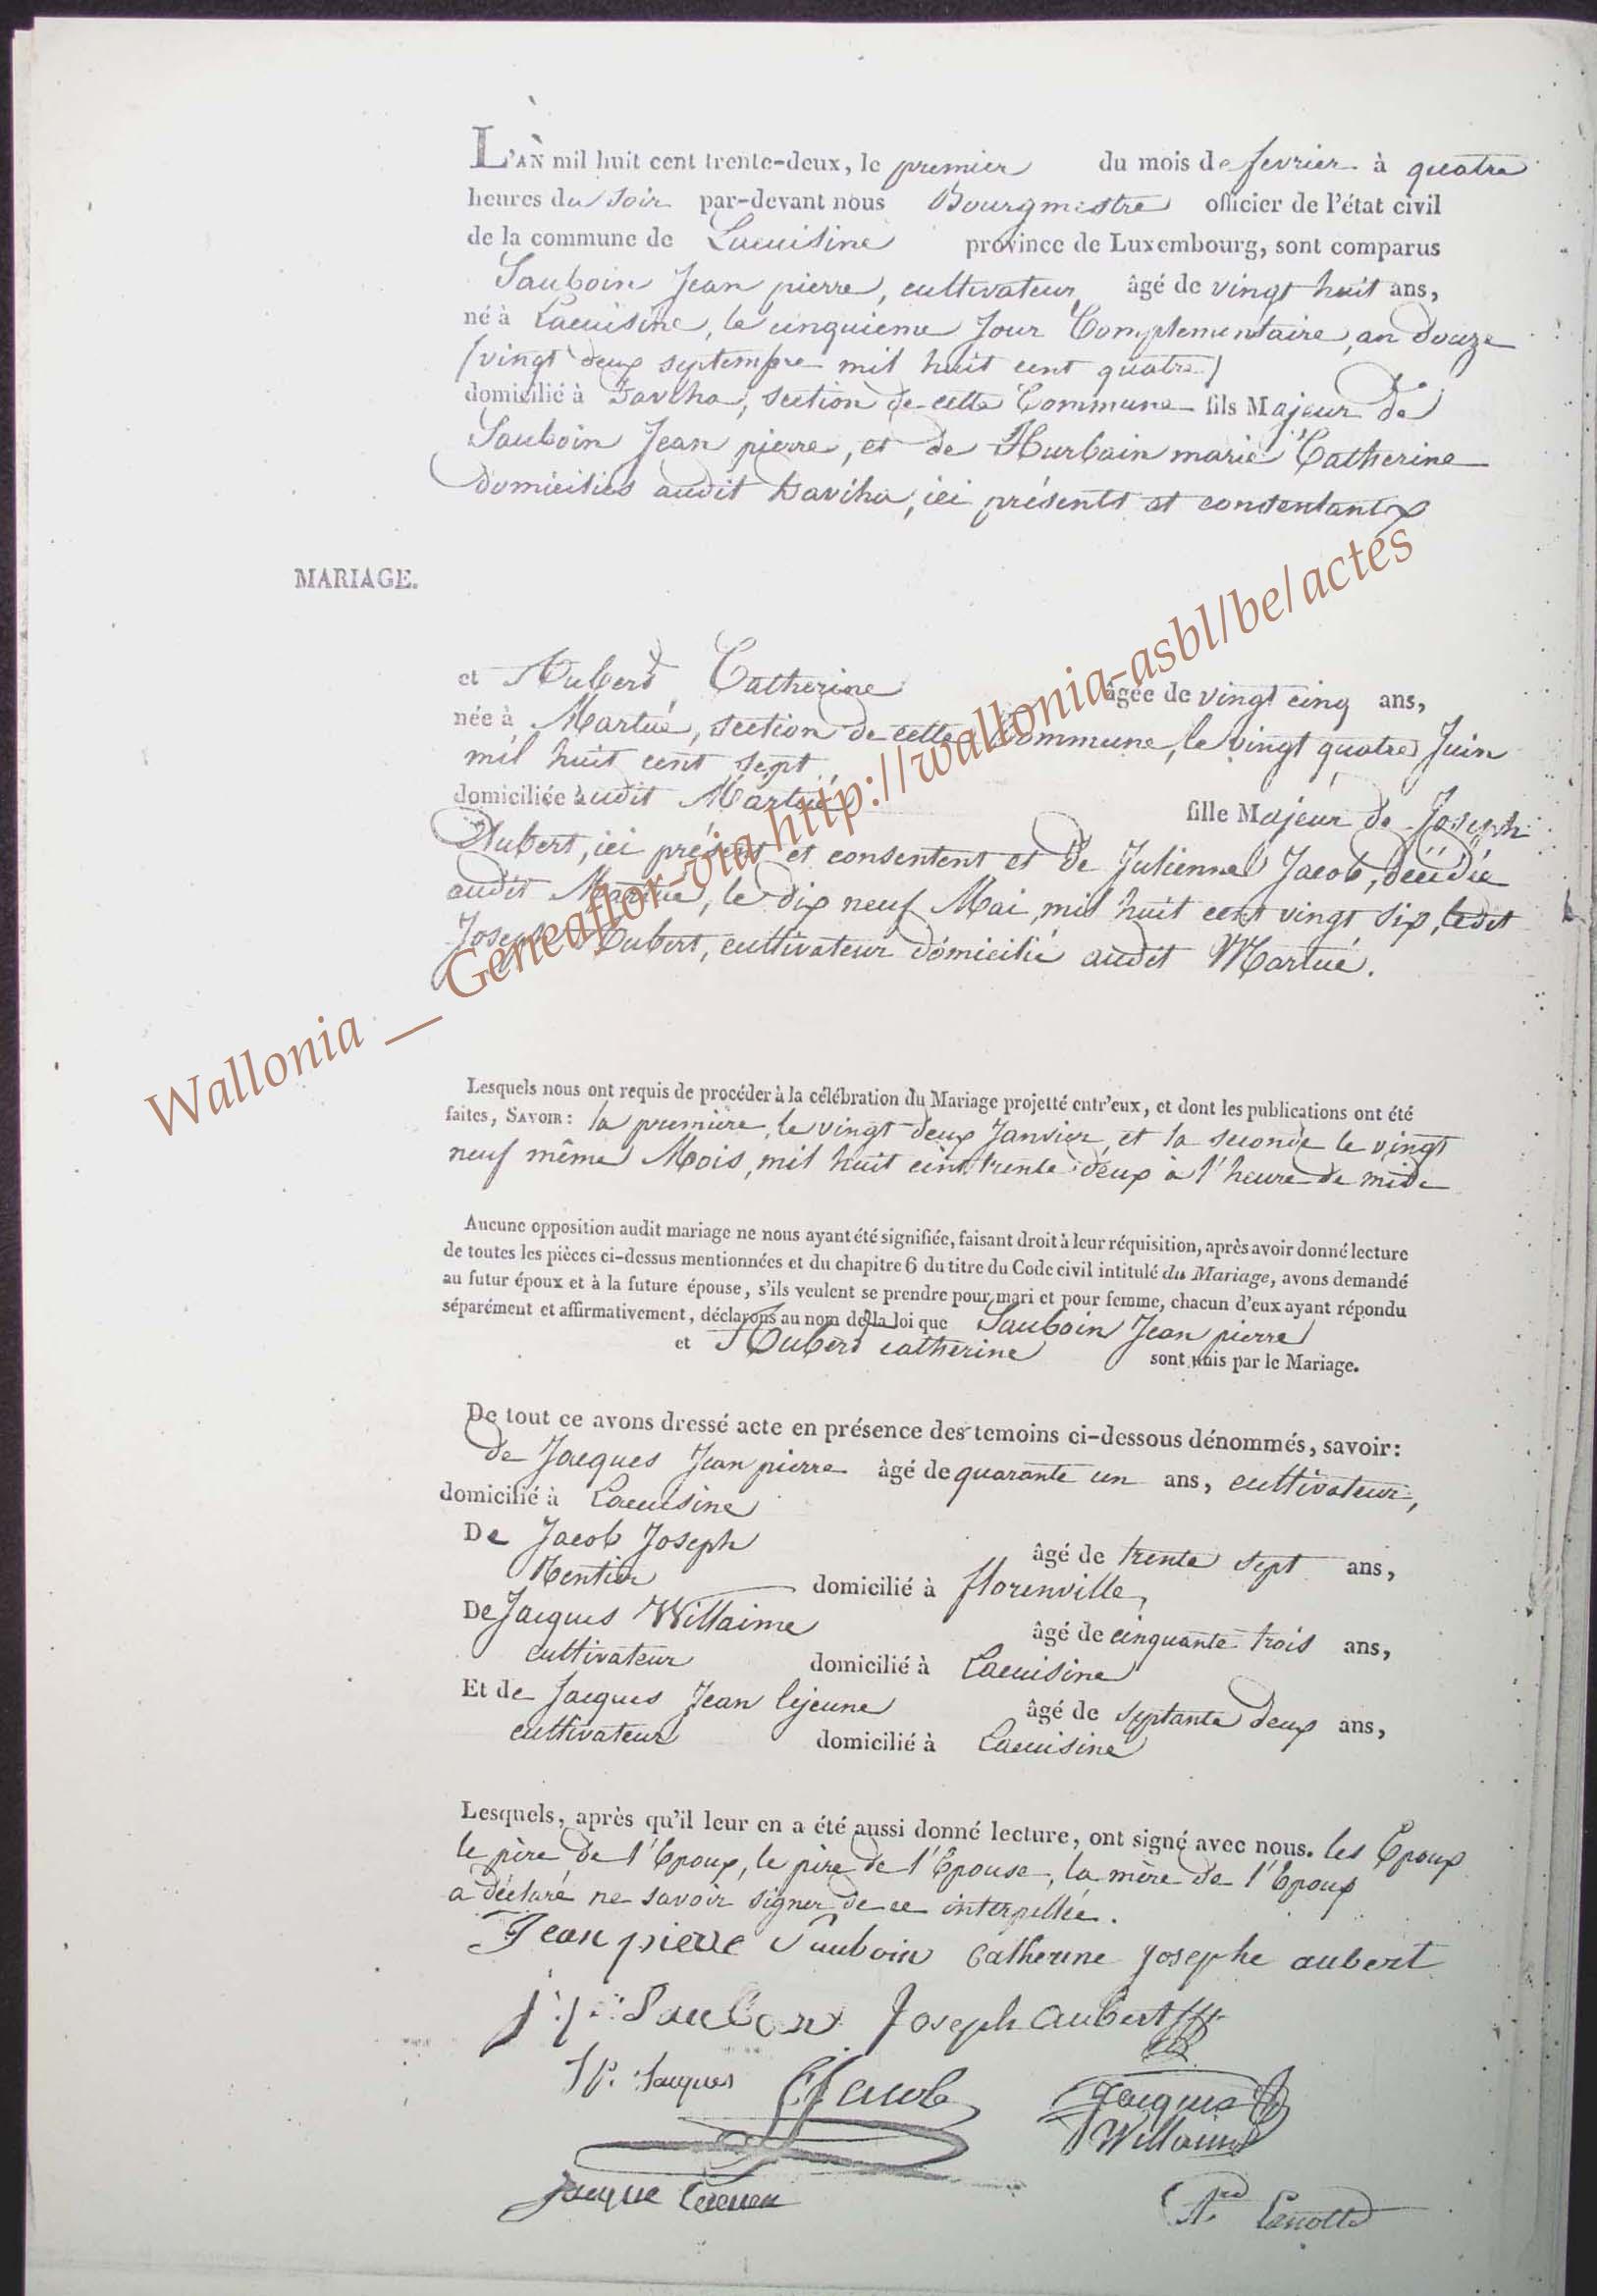 L'AN mil huit cent trente-deux, le premier du mois de fevrier à quatre
heures du soir par-devant nous Bourgmestre officier de l'état civil
de la commune de Lacuisine province de Luxembourg, sont comparus
Sauboin Jean pierre, cultivateur, âgé de vingt huit ans,
né à Lacuisine, le cinquieme Jour Complementaire, an douze
(vingt deux septempre mil huit cent quatre)
domicilié à Daviha, section de cette Commune fils Majeur de
Sauboin Jean pierre, et de Hurbain marie Catherine
domiciliés audit Daviha, ici présents et consentants
MARIAGE.
et Hubert Catherine âgée de vingt cinq ans,
née à Martué, section de cette Commune, le vingt quatre Juin
mil huit cent sept
domiciliée audit Martué fille Majeur de Joseph
Hubert, ici présent et consentent et de Julienne Jacob, décédée
audit Martué, le dix neuf Mai, mil huit cent vingt six, ledit
Joseph Hubert, cultivateur domicilié audit Martué.
Lesquels nous ont requis de procéder à la célébration du Mariage projetté entr'eux, et dont les publications ont été
faites, SAVOIR: la première, le vingt deux Janvier, et la seconde le vingt
neuf même Mois, mil huit cent trente deux à l'heure de mide
Aucune opposition audit mariage ne nous ayant été signifiée, faisant droit à leur réquisition, après avoir donné lecture
de toutes les pièces ci-dessus mentionnées et du chapitre 6 du titre du Code civil intitulé du Mariage, avons demandé
au futur époux et à la future épouse, s'ils veulent se prendre pour mari et pour femme, chacun d'eux ayant répondu
séparément et affirmativement, déclarons au nom de la loi que Sauboin Jean pierre
et Hubert catherine sont unis par le Mariage.
De tout ce avons dressé acte en présence des temoins ci-dessous dénommés, savoir:
de Jacques Jean pierre âgé de quarante un ans, cultivateur,
domicilié à Lacuisine
De Jacob Joseph âgé de trente sept ans,
Rentier domicilié à florenville,
De Jacques Willaime âgé de cinquante trois ans,
cultivateur domicilié à Lacuisine
Et de Jacques Jean lejeune âgé de septante deux ans,
cultivateur domicilié à Lacuisine
Lesquels, après qu'il leur en a été aussi donné lecture, ont signé avec nous. les Epoux
le père de l'Epoux, le père de l'Epouse, la mère de l'Epoux
a déclaré ne savoir signer de ce interpellée.
Jean pierre Sauboin Catherine josephe aubert
Joseph aubert
JP. Jacques Jacob Jacques
Willaime
Jacque
Wallonia __ Geneaflor via http://wallonia-asbl/be/actes